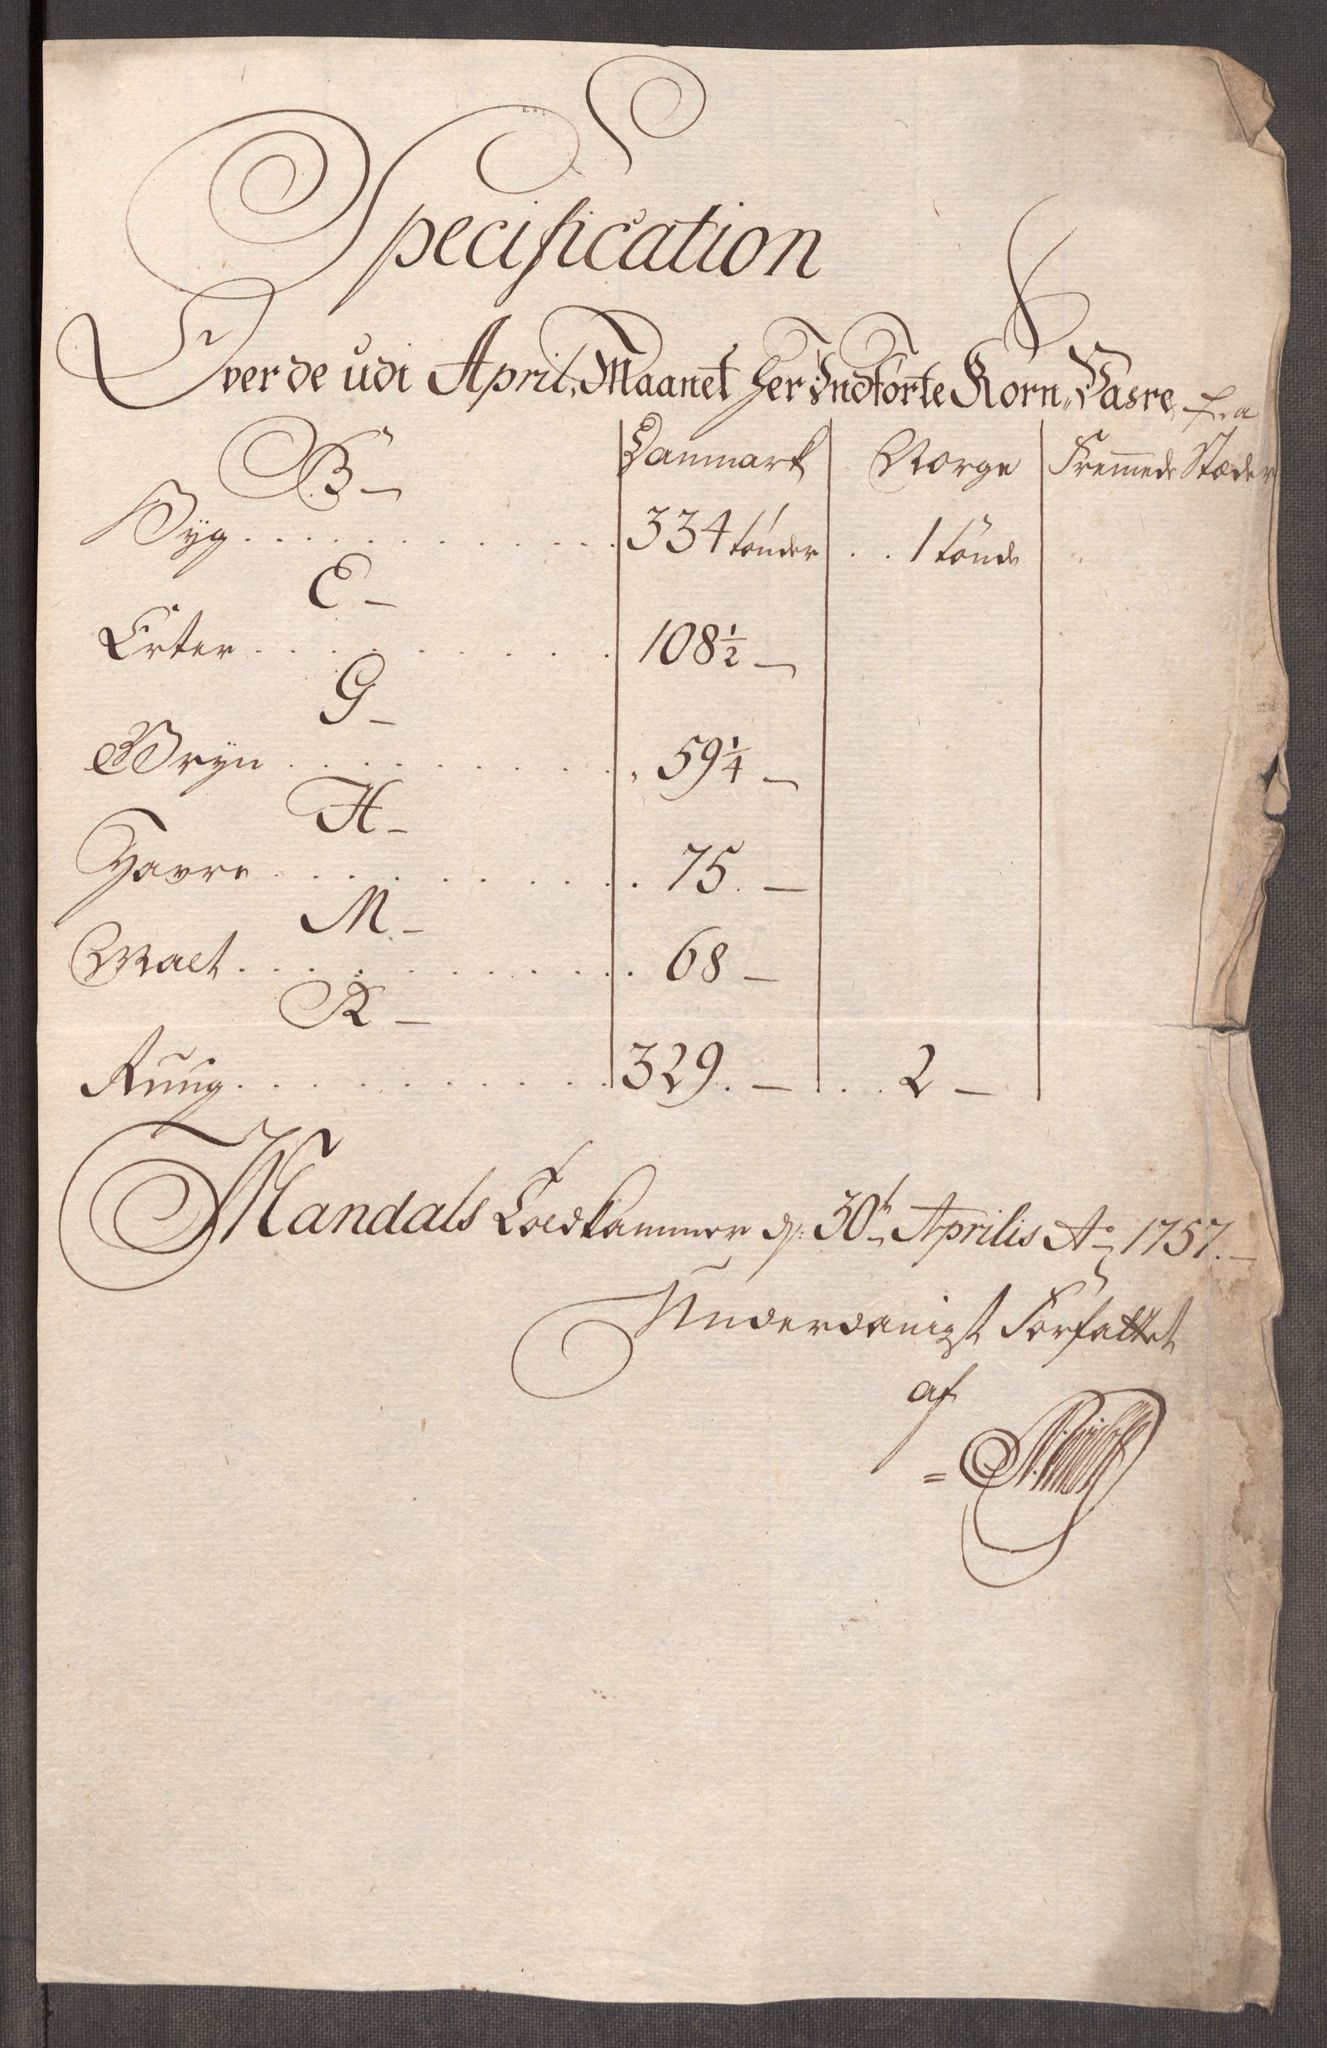 Specification
Over de udi April, Maanet her Indførte Korn, Vasre, fra
B — Danmark Norge Fremmede Stæder
Byg . . . . . . 334 tønder . . 1 tønde
E —
Erter . . . . . . 108½ —
G —
Gryn . . . . . . 59¼ —
H —
Havre . . . . . . 75. —
M. —
Malt . . . . . . 68 —
R —
Ruug . . . . . . 329. — . . 2 —
Mandals Toldkammer d: 30t Aprilis Ao 1757. —
Underdanigst Forfattet
af